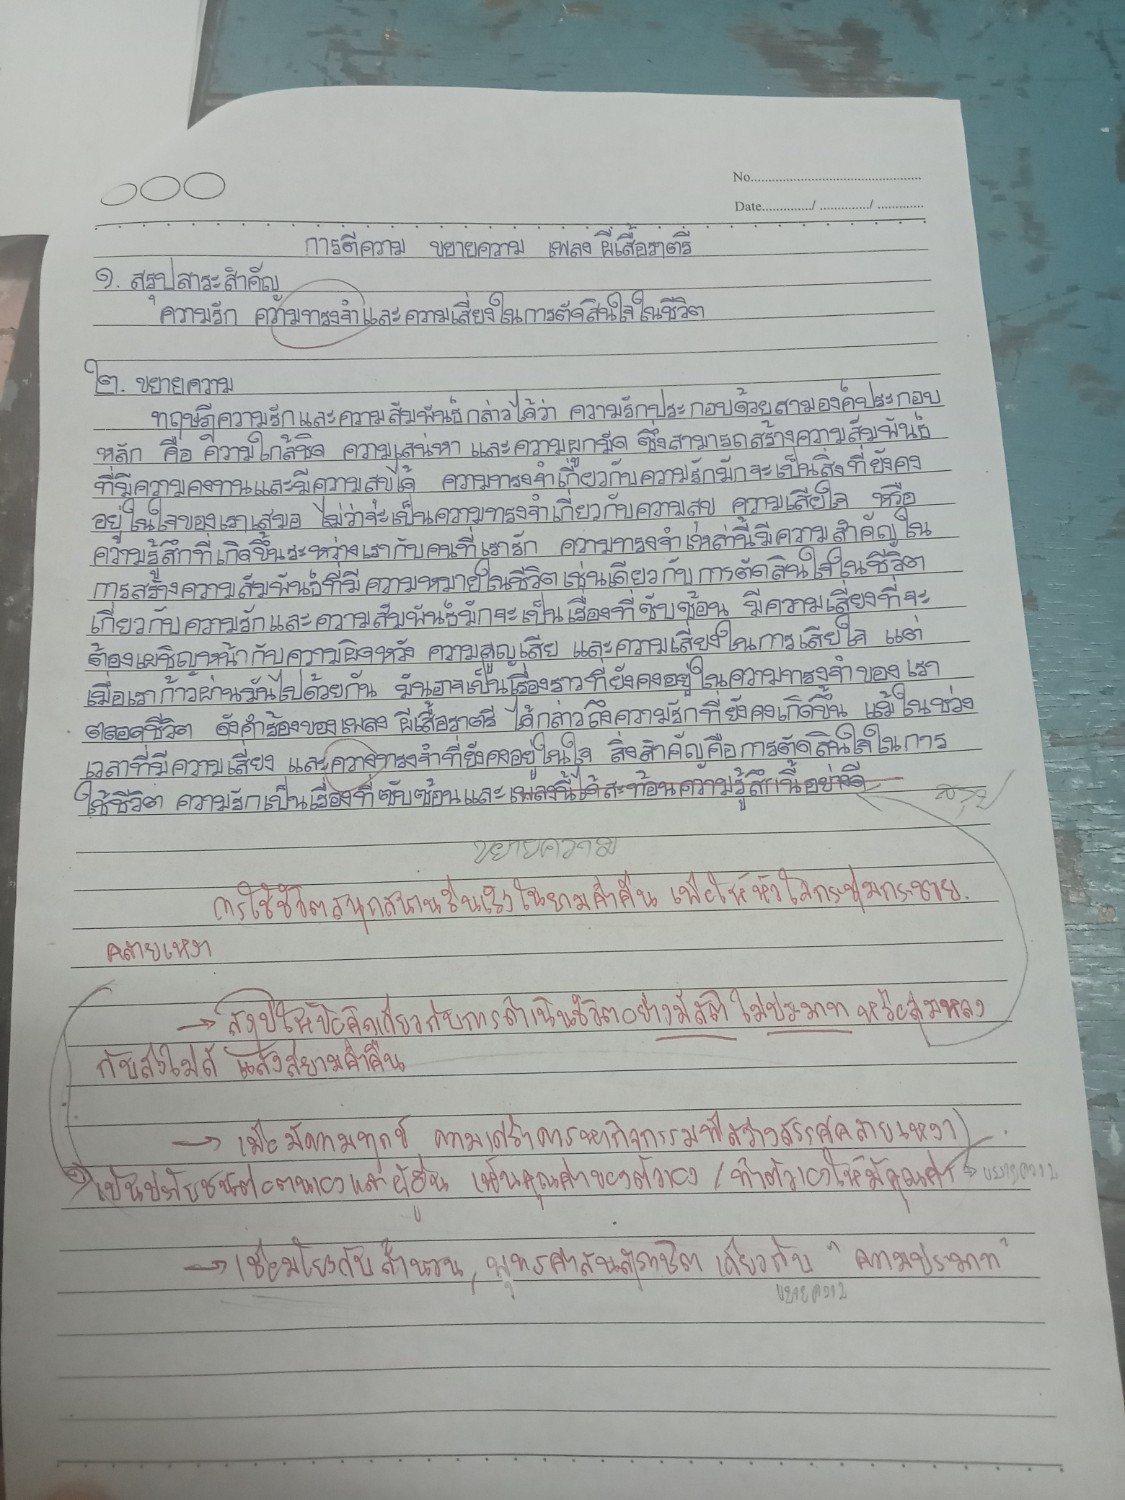 No.
Date / /
การตีความ ขยายความ เพลง ผีเสื้อราตรี
๑. สรุปสาระสำคัญ
ความรัก ความทรงจำและความเสี่ยงในการตัดสินใจในชีวิต
๒. ขยายความ
ทฤษฎีความรักและความสัมพันธ์กล่าวได้ว่า ความรักประกอบด้วยสามองค์ประกอบ
หลัก คือ ความใกล้ชิด ความเสน่หา และความผูกมัด ซึ่งสามารถสร้างความสัมพันธ์
ที่มีความคงทนและมีความสุขได้ ความทรงจำเกี่ยวกับความรักมักจะเป็นสิ่งที่ยังคง
อยู่ในใจของเราเสมอ ไม่ว่าจะเป็นความทรงจำเกี่ยวกับความสุข ความเสียใจ หรือ
ความรู้สึกที่เกิดขึ้นระหว่างเรากับคนที่เรารัก ความทรงจำเหล่านี้มีความสำคัญใน
การสร้างความสัมพันธ์ที่มีความหมายในชีวิตเช่นเดียวกับการตัดสินใจในชีวิต
เกี่ยวกับความรักและความสัมพันธ์มักจะเป็นเรื่องที่ซับซ้อน มีความเสี่ยงที่จะ
ต้องเผชิญหน้ากับความผิดหวัง ความสูญเสีย และความเสี่ยงในการเสียใจ แต่
เมื่อเราก้าวผ่านมันไปด้วยกัน มันอาจเป็นเรื่องราวที่ยังคงอยู่ในความทรงจำของเรา
ตลอดชีวิต ดังคำร้องของเพลง ผีเสื้อราตรี ได้กล่าวถึงความรักที่ยังคงเกิดขึ้น แม้ในช่วง
เวลาที่มีความเสี่ยง และความทรงจำที่ยังคงอยู่ในใจ สิ่งสำคัญคือการตัดสินใจในการ
ใช้ชีวิต ความรักเป็นเรื่องที่ซับซ้อนและเพลงนี้ได้สะท้อนความรู้สึกนี้อย่างดี
ขยายความ
การใช้ชีวิตสนุกสนานรื่นเริงในยามค่ำคืน เพื่อให้หัวใจกระชุ่มกระชวย
คลายเหงา
→ สรุปให้ข้อคิดเกี่ยวกับการดำเนินชีวิตอย่างมีสติ ไม่ประมาท หรือลุ่มหลง
กับสิ่งไม่ดี แสงสียามค่ำคืน
→ เมื่อมีความทุกข์ ความเศร้าควรหากิจกรรมที่สร้างสรรค์คลายเหงา
เป็นประโยชน์ต่อตนเองและผู้อื่น เห็นคุณค่าของตัวเอง / ทำตัวเองให้มีคุณค่า → ขยายความ
→ เชื่อมโยงกับสำนวน, พุทธศาสนสุภาษิต เกี่ยวกับ "ความประมาท"
ขยายความ